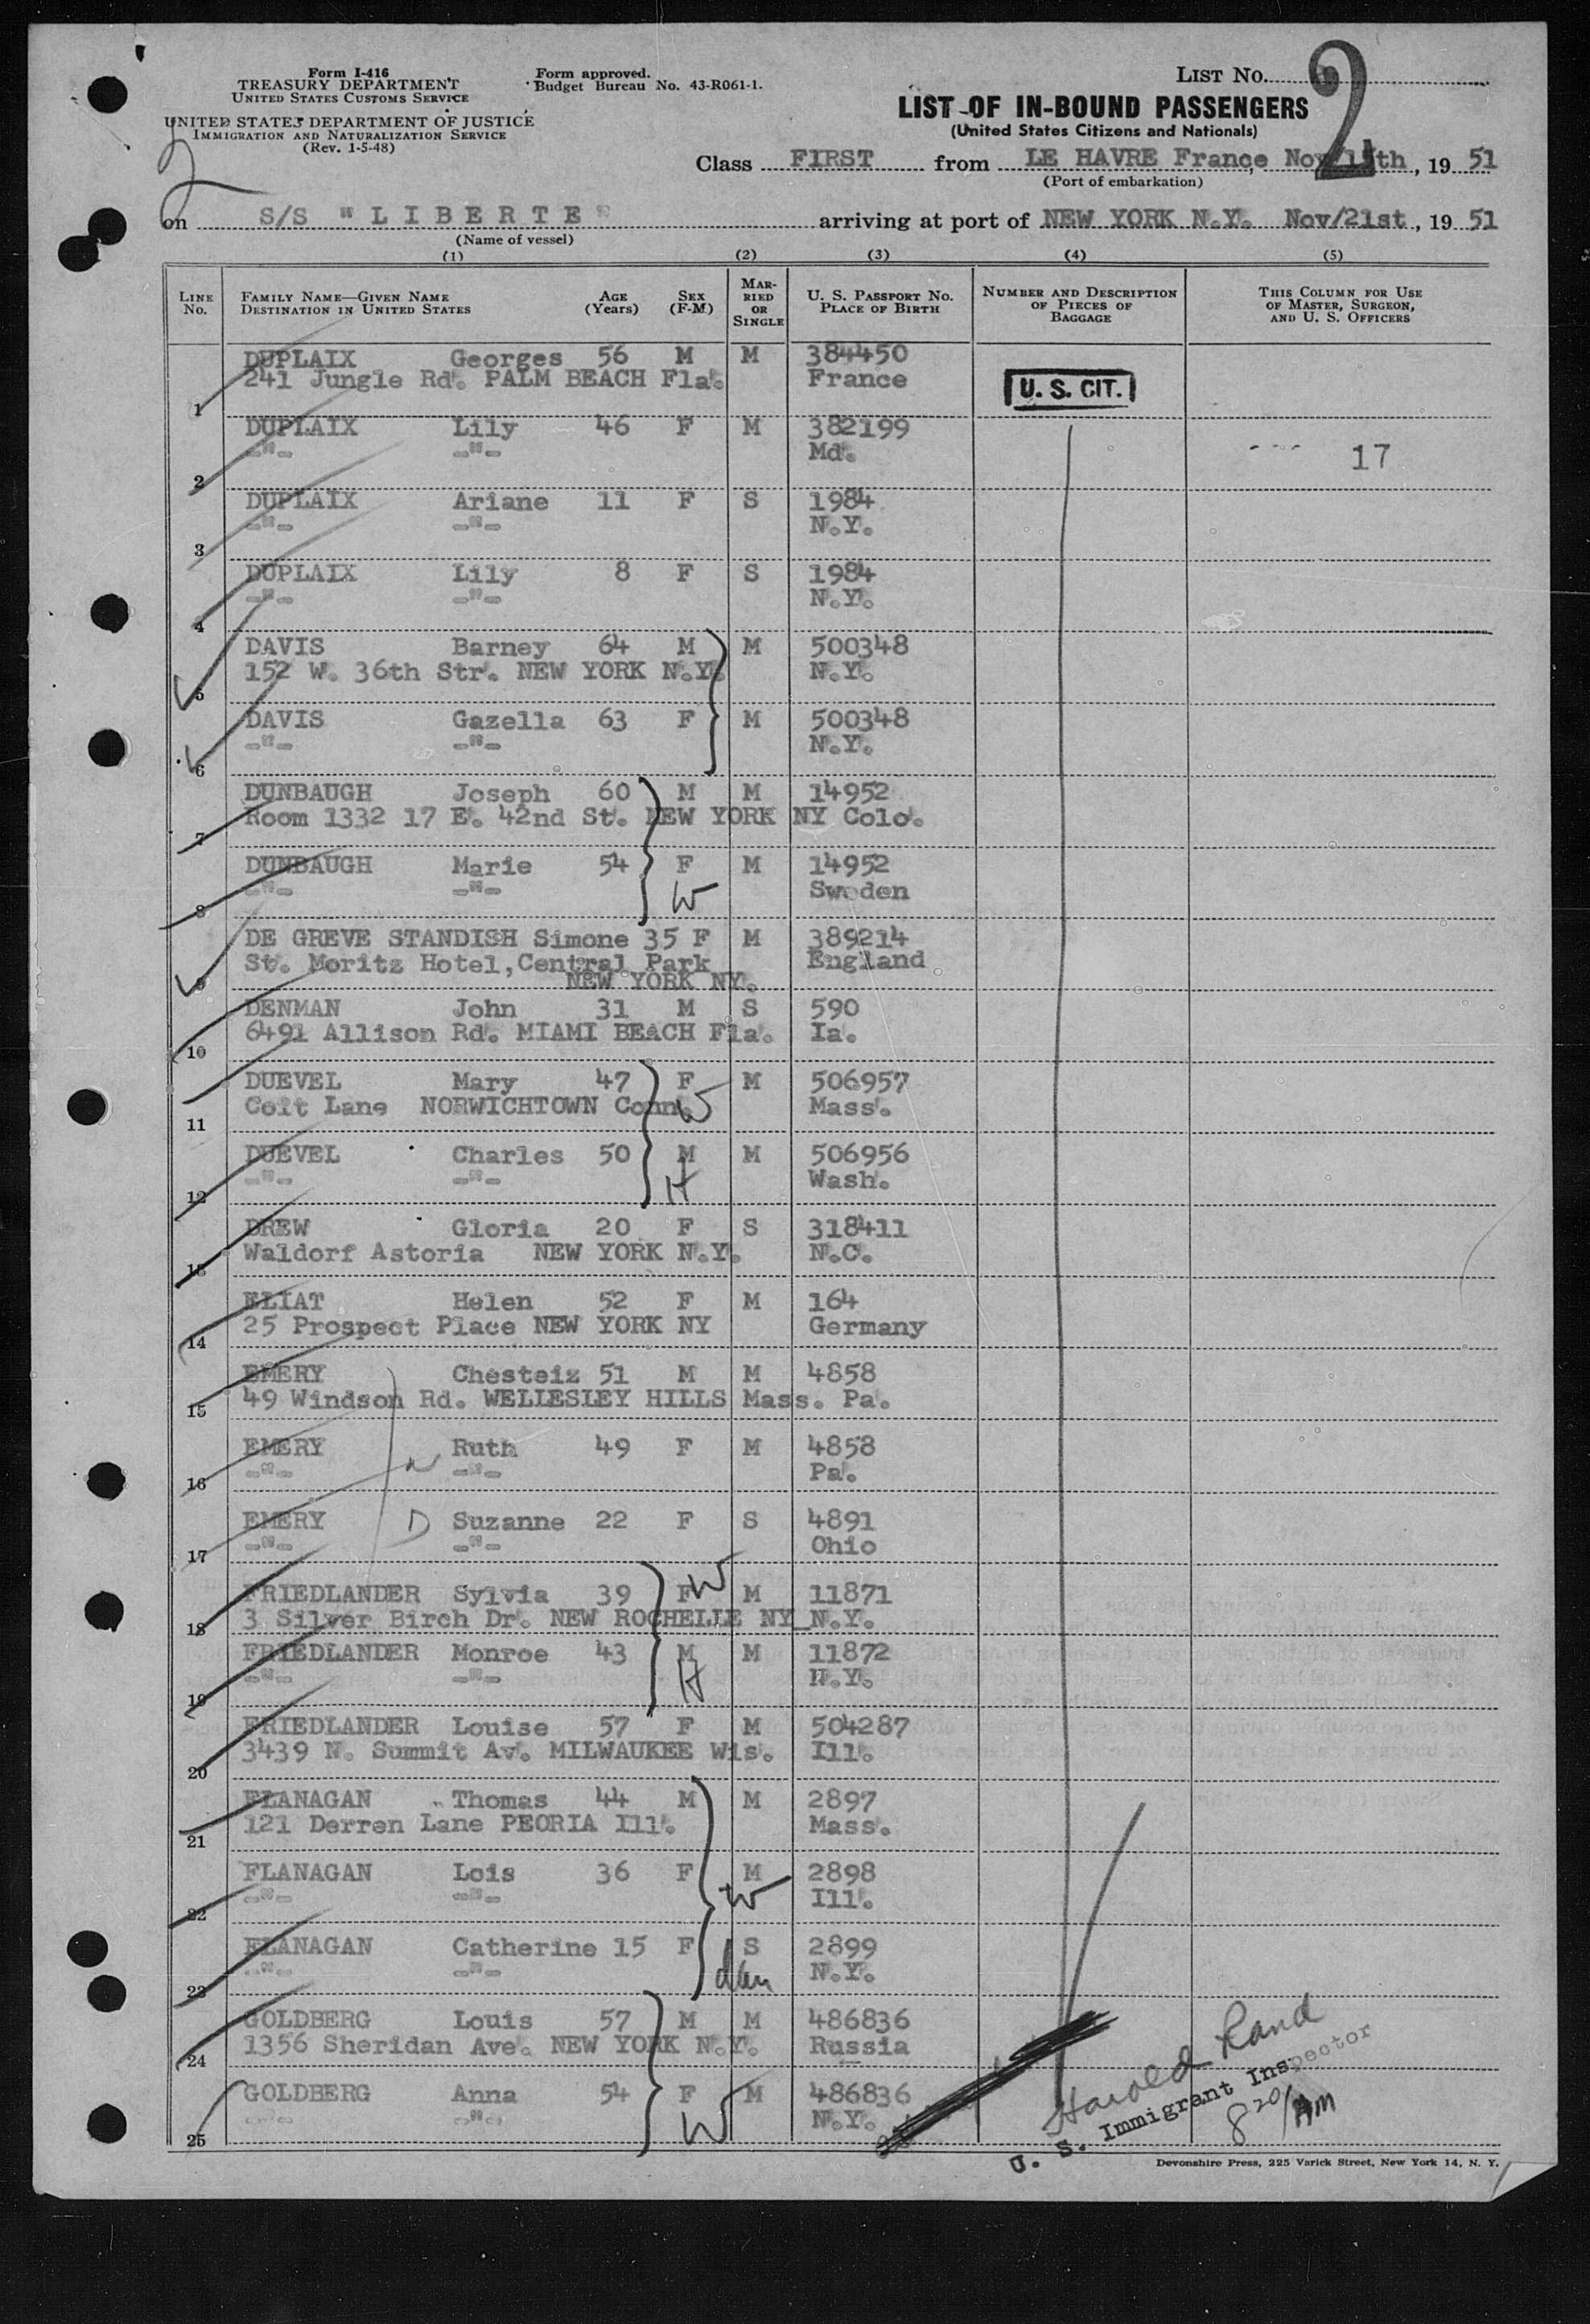 Form I-416
TREASURY DEPARTMENT
UNITED STATES CUSTOMS SERVICE
UNITED STATES DEPARTMENT OF JUSTICE
IMMIGRATION AND NATURALIZATION SERVICE
(Rev. 1-5-48)
Form approved.
Budget Bureau No. 43-R061-1.
LIST NO. 2
LIST OF IN-BOUND PASSENGERS
(United States Citizens and Nationals)
Class FIRST from LE HAVRE France, , 19 51
(Port of embarkation)
2
on S/S "LIBERTE" arriving at port of NEW YORK N.Y. Nov/21st, 19 51
(Name of vessel)
(1) (2) (3) (4) (5)
LINE NO. FAMILY NAME—GIVEN NAME DESTINATION IN UNITED STATES AGE (Years) SEX (F-M) MARRIED OR SINGLE U. S. PASSPORT NO. PLACE OF BIRTH NUMBER AND DESCRIPTION OF PIECES OF BAGGAGE THIS COLUMN FOR USE OF MASTER, SURGEON, AND U. S. OFFICERS
DUPLAIX Georges 56 M M 384450
241 Jungle Rd. PALM BEACH Fla. France
U. S. CIT.
1
DUPLAIX Lily 46 F M 382199
-"- -"- Md. 17
2
DUPLAIX Ariane 11 F S 1984
-"- -"- N.Y.
3
DUPLAIX Lily 8 F S 1984
-"- -"- N.Y.
4
DAVIS Barney 64 M M 500348
152 W. 36th Str. NEW YORK N.Y. N.Y.
5
DAVIS Gazella 63 F M 500348
-"- -"- N.Y.
6
DUNBAUGH Joseph 60 M M 14952
Room 1332 17 E. 42nd St. NEW YORK NY Colo.
7
DUNBAUGH Marie 54 F M 14952
-"- -"- W Sweden
8
DE GREVE STANDISH Simone 35 F M 389214
St. Moritz Hotel, Central Park England
NEW YORK NY.
9
DENMAN John 31 M S 590
6491 Allison Rd. MIAMI BEACH Fla. Ia.
10
DUEVEL Mary 47 F M 506957
Coit Lane NORWICHTOWN Conn. W Mass.
11
DUEVEL Charles 50 M M 506956
-"- -"- H Wash.
12
DREW Gloria 20 F S 318411
Waldorf Astoria NEW YORK N.Y. N.C.
13
ELIAT Helen 52 F M 164
25 Prospect Place NEW YORK NY Germany
14
EMERY Chesteiz 51 M M 4858
49 Windson Rd. WELLESLEY HILLS Mass. Pa.
15
EMERY Ruth 49 F M 4858
-"- W -"- Pa.
16
EMERY D Suzanne 22 F S 4891
-"- -"- Ohio
17
FRIEDLANDER Sylvia 39 F W M 11871
3 Silver Birch Dr. NEW ROCHELLE NY N.Y.
18
FRIEDLANDER Monroe 43 M M 11872
-"- -"- H N.Y.
19
FRIEDLANDER Louise 57 F M 504287
3439 N. Summit Av. MILWAUKEE Wis. Ill.
20
FLANAGAN Thomas 44 M M 2897
121 Derren Lane PEORIA Ill. Mass.
21
FLANAGAN Lois 36 F M 2898
-"- -"- W Ill.
22
FLANAGAN Catherine 15 F S 2899
-"- -"- dau N.Y.
23
GOLDBERG Louis 57 M M 486836
1356 Sheridan Ave. NEW YORK N.Y. Russia
24
GOLDBERG Anna 54 F M 486836
-"- -"- W N.Y.
25
Harold Rand
U. S. Immigrant Inspector
8 20/AM
Devonshire Press, 225 Varick Street, New York 14, N. Y.